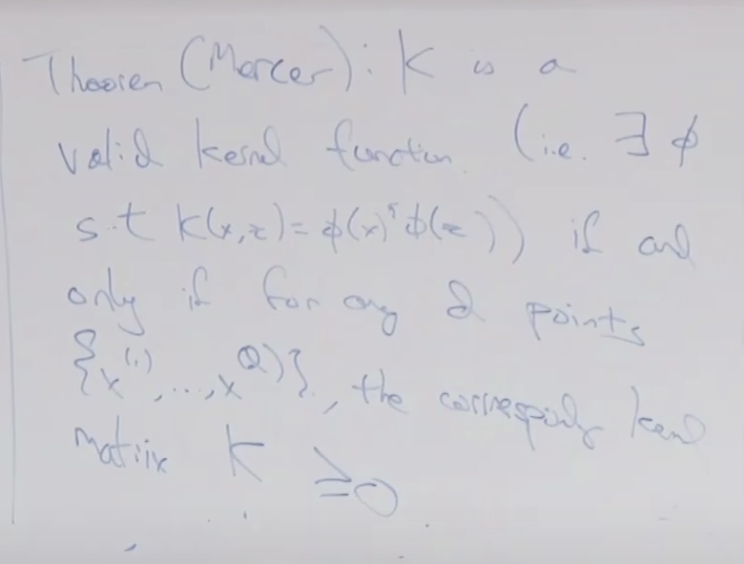 Theorem (Mercer): K is a
valid kernel function (i.e. ∃ φ
s.t K(x,z)=φ(x)ᵀφ(z)) if and
only if for any d points
{x⁽¹⁾,...,x⁽ᵈ⁾}, the corresponding kernel
matrix K ≥0